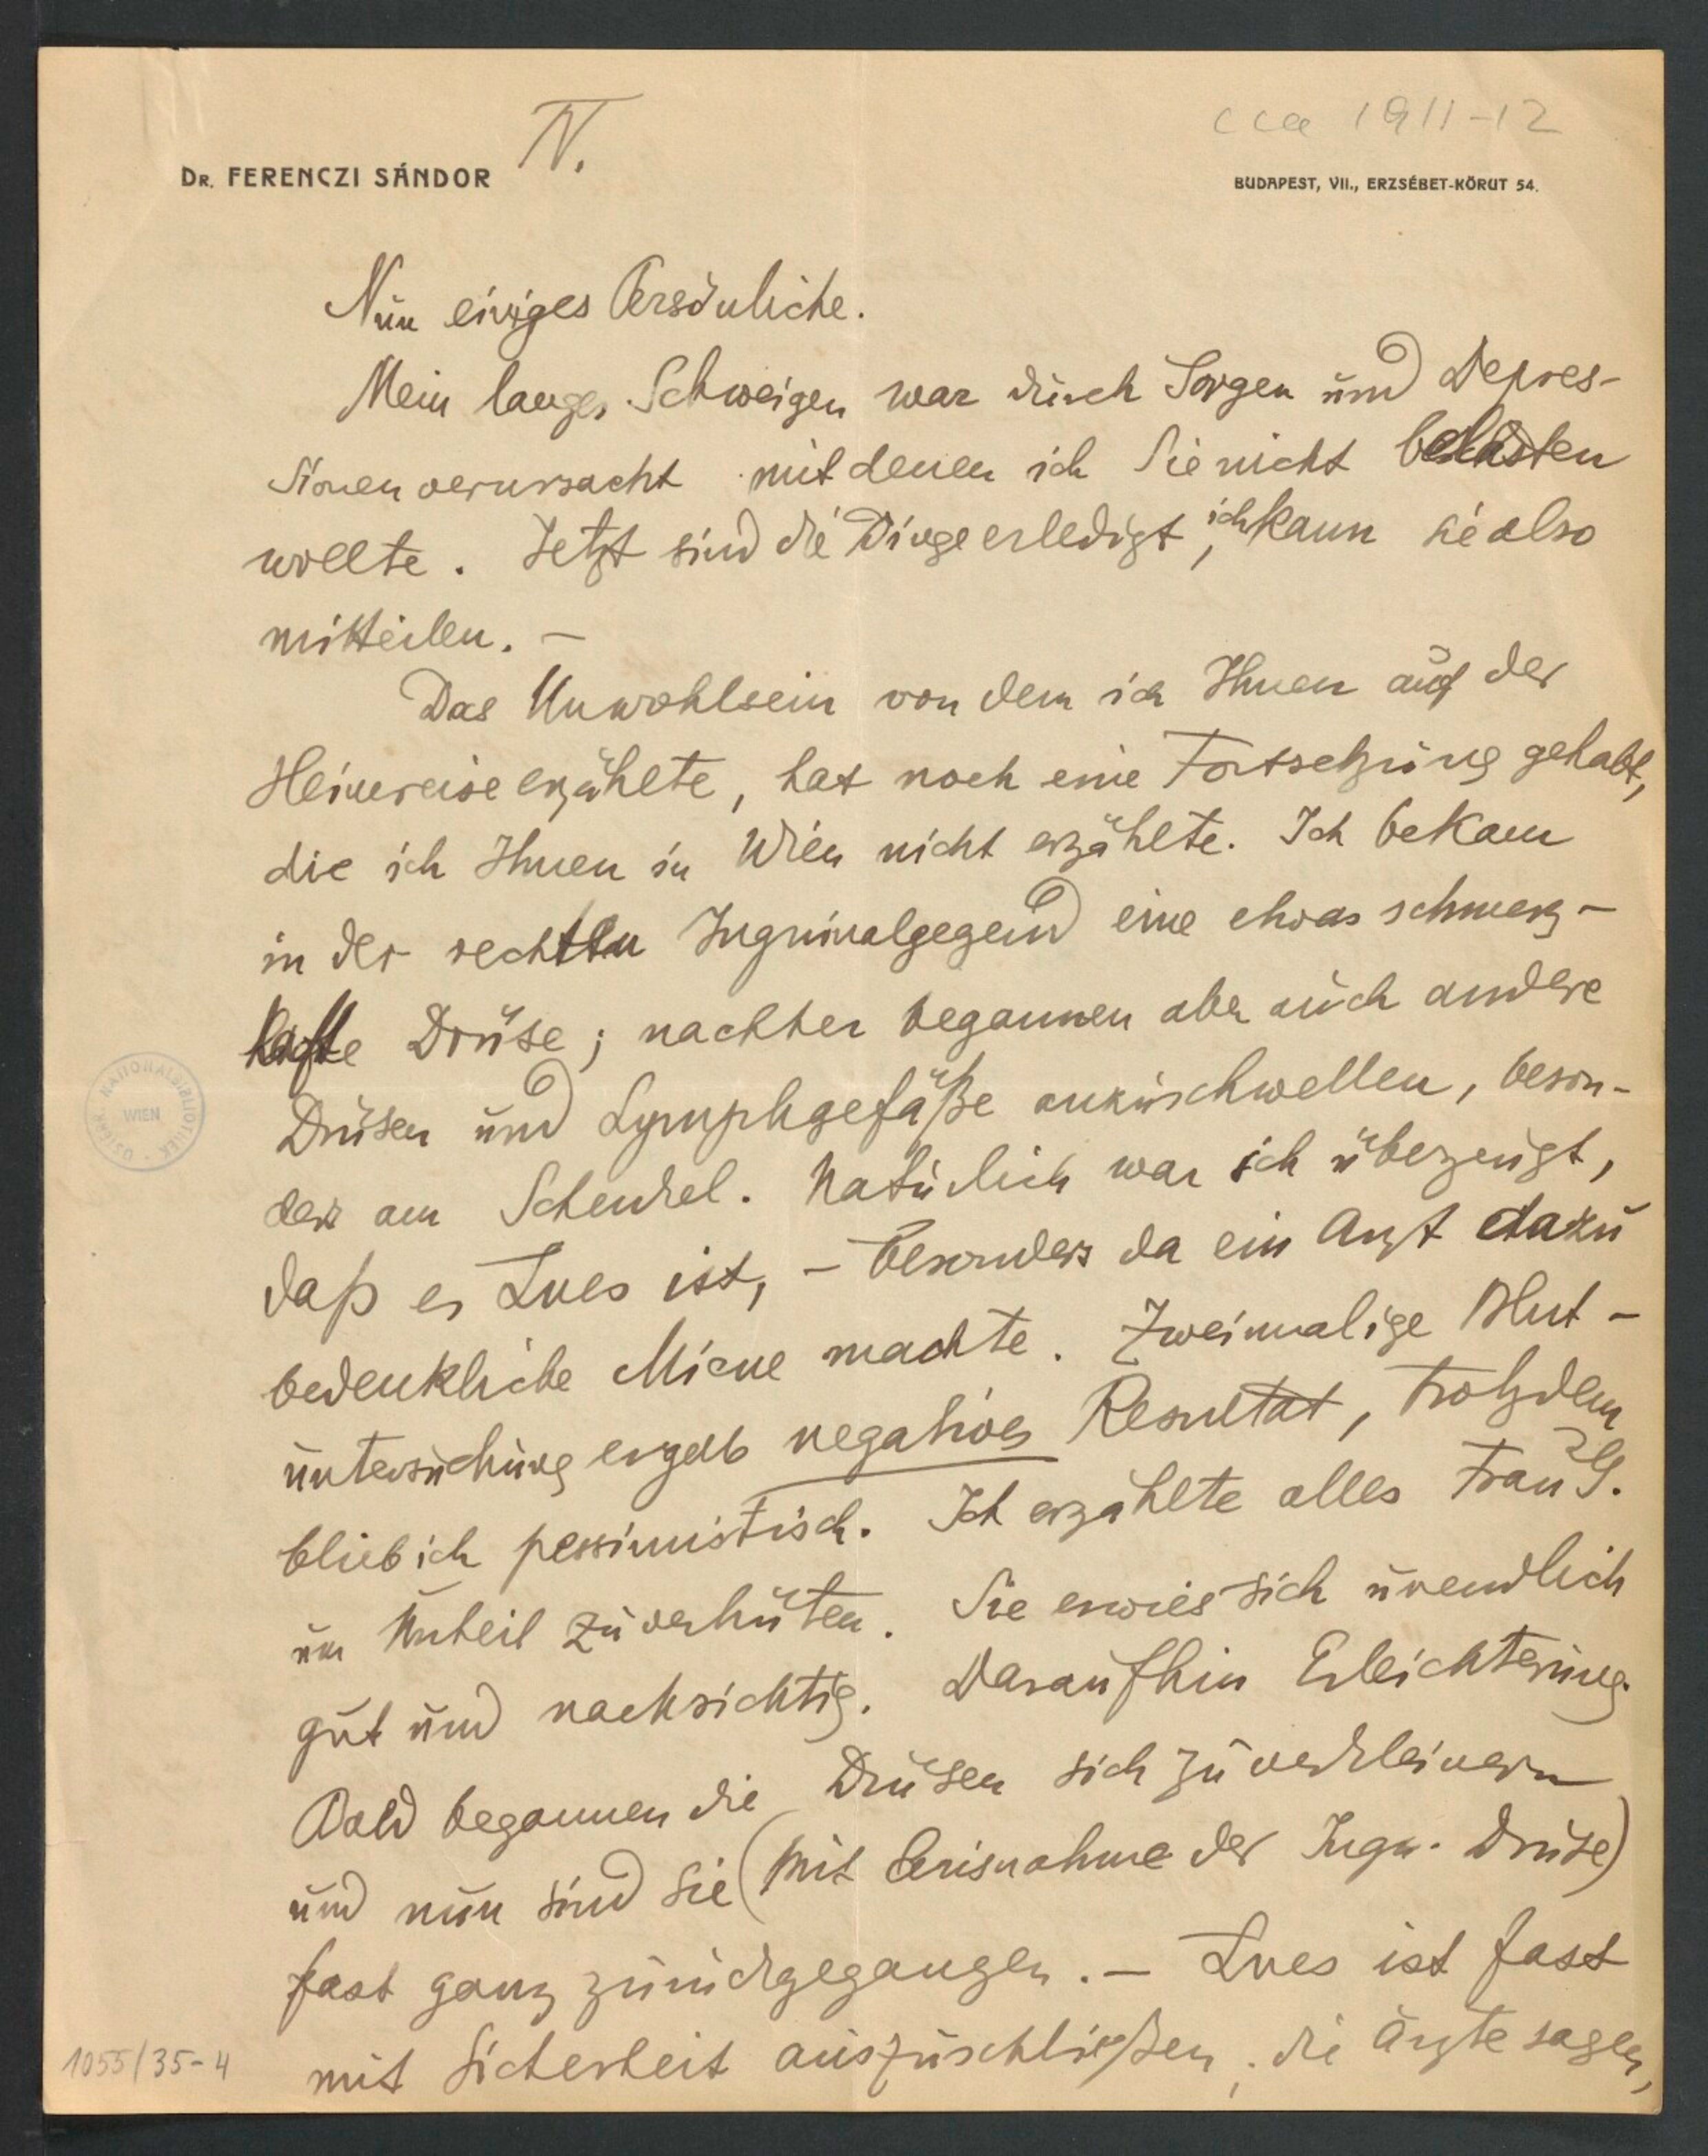 IV.
cca 1911-12
Dr. FERENCZI SÁNDOR
BUDAPEST, VII., ERZSÉBET-KÖRUT 54.
Nun einiges Persönliche.
Mein langes Schweigen war durch Sorgen und Depres-
sionen verursacht mit denen ich Sie nicht belasten
wollte. Jetzt sind die Dinge erledigt, ich kann sie also
mitteilen. –
Das Unwohlsein von dem ich Ihnen auf der
Heimreise erzählte, hat noch eine Fortsetzung gehabt,
die ich Ihnen in Wien nicht erzählte. Ich bekam
in der rechten Inguinalgegend eine etwas schmerz-
hafte Drüse; nachher begannen aber auch andere
Drüsen und Lymphgefäße anzuschwellen, beson-
ders am Schenkel. Natürlich war ich überzeugt,
daß es Lues ist, – besonders da ein Arzt dazu
bedenkliche Miene machte. Zweimalige Blut-
untersuchung ergab negatives Resultat, trotzdem
blieb ich pessimistisch. Ich erzählte alles Frau G.
um Unheil zu verhüten. Sie erwies sich unendlich
gut und nachsichtig. Daraufhin Erleichterung.
Bald begannen die Drüsen sich zu verkleinern
und nun sind sie (mit Ausnahme der Ingu. Drüse)
fast ganz zurückgegangen. – Lues ist fast
mit Sicherheit auszuschließen; die Ärzte sagen,
ÖSTERR. NATIONALBIBLIOTHEK
WIEN
1055/35-4